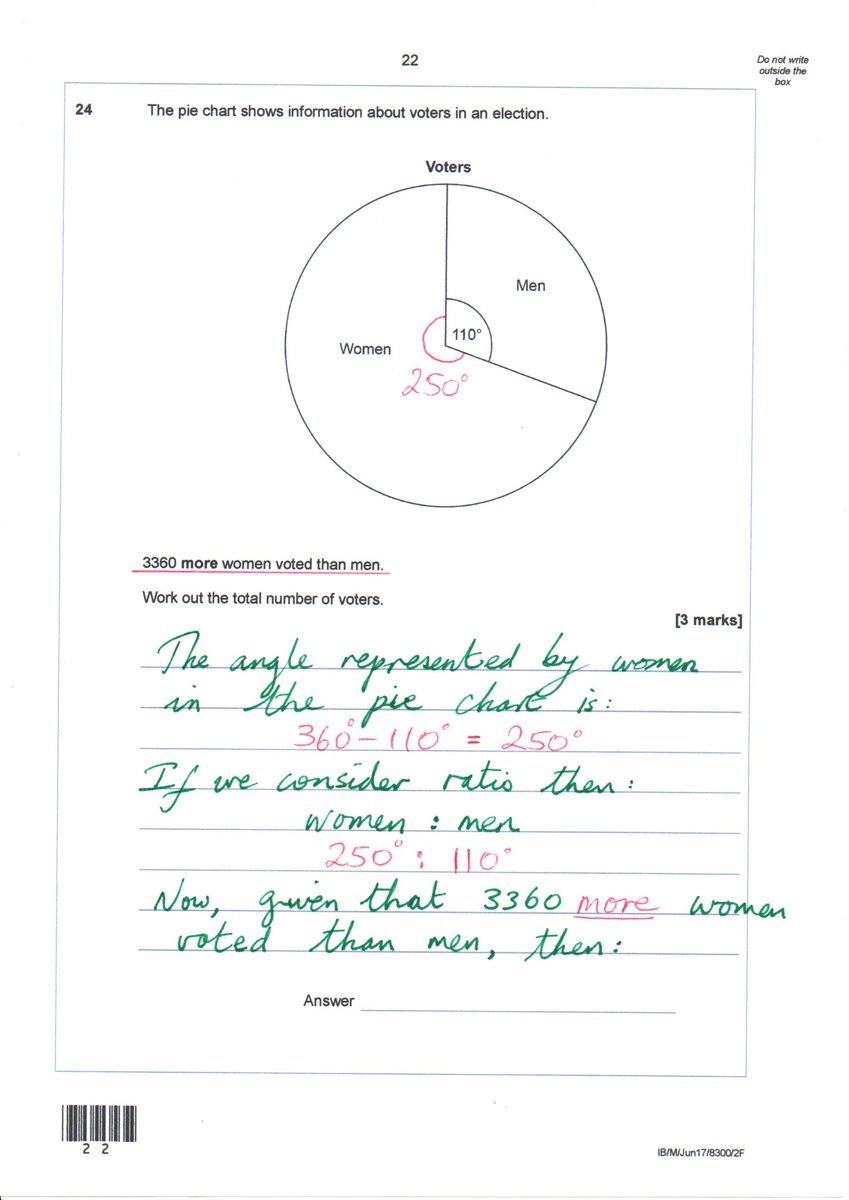 22
Do not write
outside the
box
24 The pie chart shows information about voters in an election.
Voters
Men
110°
Women
250°
3360 more women voted than men.
Work out the total number of voters.
[3 marks]
The angle represented by women
in the pie chart is:
360° - 110° = 250°
If we consider ratio then:
women : men
250° : 110°
Now, given that 3360 more women
voted than men, then:
Answer
2 2
IB/M/Jun17/8300/2F